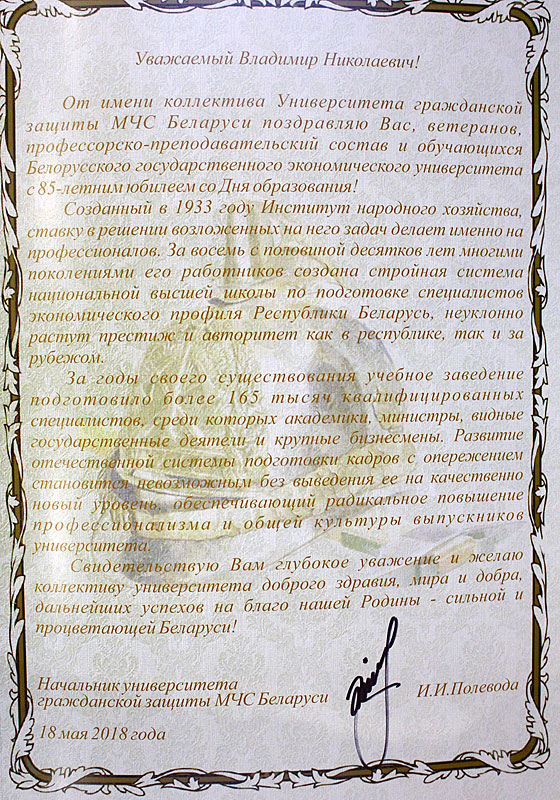 Уважаемый Владимир Николаевич!
От имени коллектива Университета гражданской
защиты МЧС Беларуси поздравляю Вас, ветеранов,
профессорско-преподавательский состав и обучающихся
Белорусского государственного экономического университета
с 85-летним юбилеем со Дня образования!
Созданный в 1933 году Институт народного хозяйства,
ставку в решении возложенных на него задач делает именно на
профессионалов. За восемь с половиной десятков лет многими
поколениями его работников создана стройная система
национальной высшей школы по подготовке специалистов
экономического профиля Республики Беларусь, неуклонно
растут престиж и авторитет как в республике, так и за
рубежом.
За годы своего существования учебное заведение
подготовило более 165 тысяч квалифицированных
специалистов, среди которых академики, министры, видные
государственные деятели и крупные бизнесмены. Развитие
отечественной системы подготовки кадров с опережением
становится невозможным без выведения ее на качественно
новый уровень, обеспечивающий радикальное повышение
профессионализма и общей культуры выпускников
университета.
Свидетельствую Вам глубокое уважение и желаю
коллективу университета доброго здравия, мира и добра,
дальнейших успехов на благо нашей Родины - сильной и
процветающей Беларуси!
Начальник университета
гражданской защиты МЧС Беларуси И.И.Полевода
18 мая 2018 года